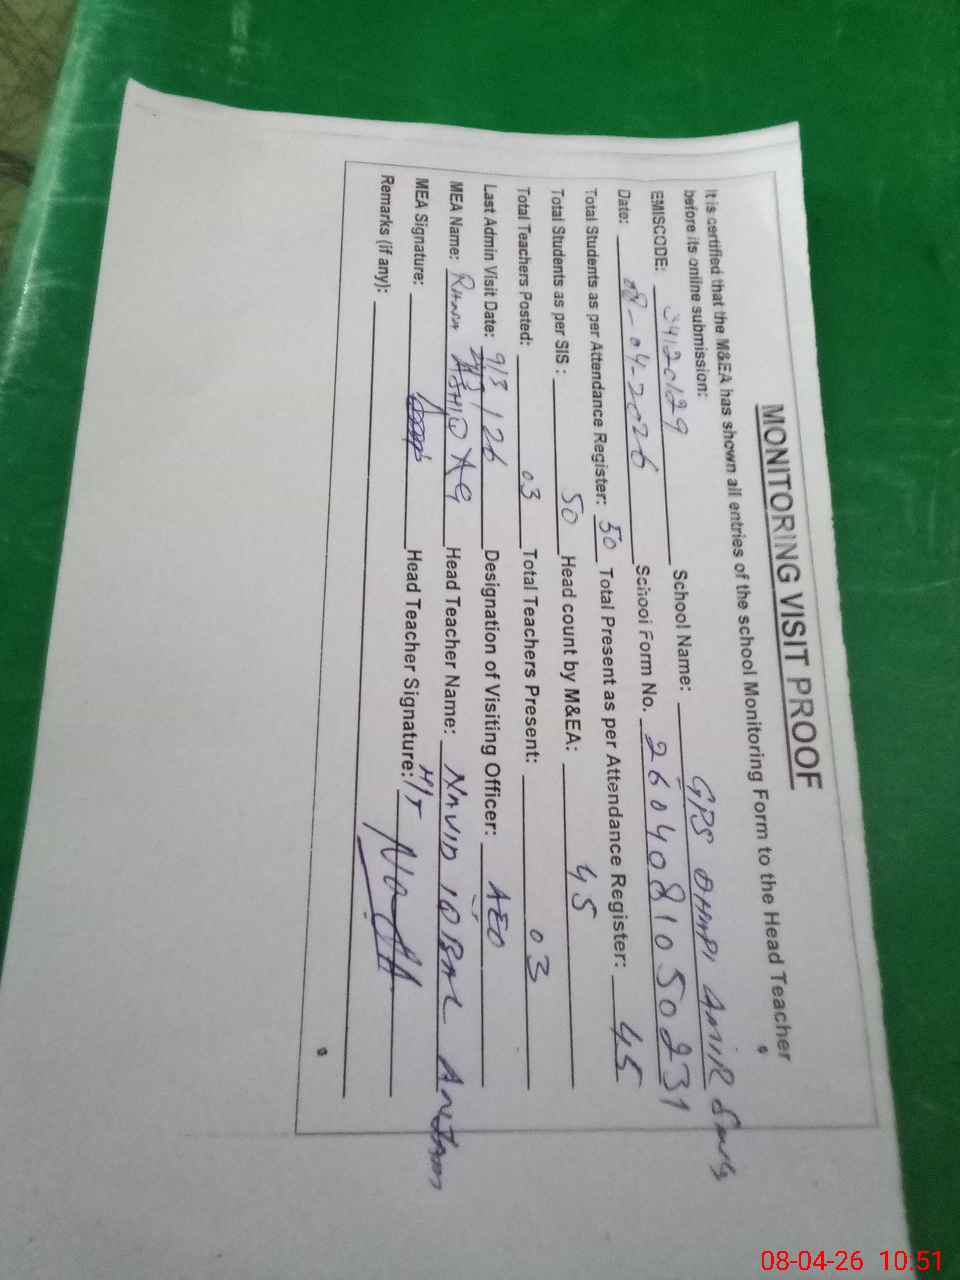 MONITORING VISIT PROOF
It is certified that the M&EA has shown all entries of the school Monitoring Form to the Head Teacher
before its online submission:
EMISCODE: 34120129 School Name: GPS DHAPI AMIR
Date: 08-04-2026 School Form No. 2604081050231
Total Students as per Attendance Register: 50 Total Present as per Attendance Register: 45
Total Students as per SIS: 50 Head count by M&EA: 45
Total Teachers Posted: 03 Total Teachers Present: 03
Last Admin Visit Date: 9/3/26 Designation of Visiting Officer: AEO
MEA Name: Head Teacher Name: IQBAL
MEA Signature: Head Teacher Signature: H/T
Remarks (if any):
08-04-26 10:51